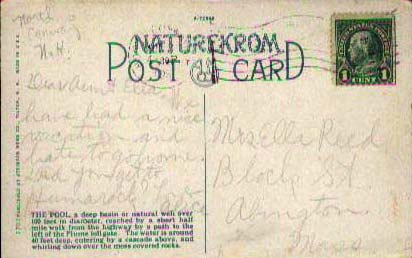 North
Conway
N.H.
NATUREKROM
POST CARD
1 CENT 1
Dear Aunt Ella, We
have had a nice
vacation and
hate to go home.
Did you get to
Humarock
THE POOL, a deep basin or natural well over
100 feet in diameter, reached by a short half
mile walk from the highway by a path to the
left of the Flume tollgate. The water is around
40 feet deep, entering by a cascade above, and
whirling down over the moss covered rocks.
Mrs Ella Reed
Block St
Abington
Mass